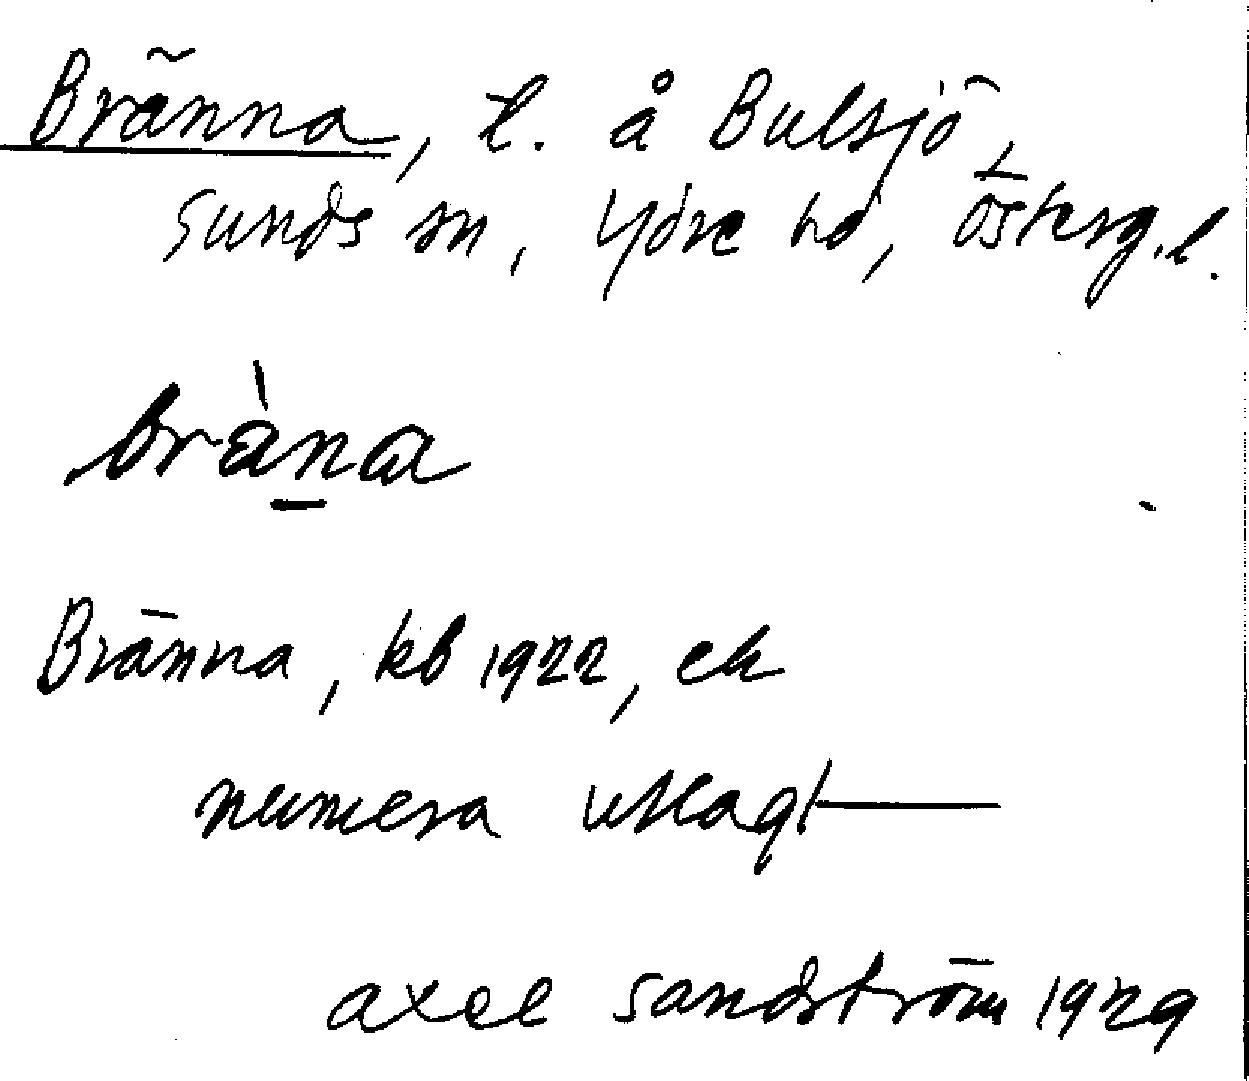 Bränna, t. å Bulsjö,
Sunds sn, Ydre hd, Österg.l.
bràna
Bränna, kb 1922, ek
numera utlagt —
Axel Sandström 1929